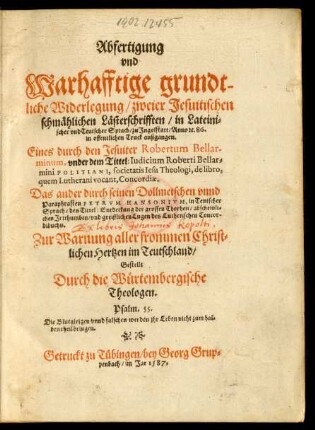 1902.12455
Abfertigung
vnd
Warhafftige grundt-
liche Widerlegung / zweier Jesuitischen
schmählichen Lästerschrifften / in Lateini-
scher vnd Teutscher Sprach / zu Ingolstatt / Anno rc. 86.
in offentlichen Truck außgangen.
Eines durch den Jesuiter Robertum Bellar-
minum. vnder dem Tittel: Iudicium Roberti Bellar-
mini POLITIANI, societatis Iesu Theologi, de libro,
quem Lutherani vocant, Concordiæ.
Das ander durch seinen Dollmetschen vnnd
Paraphrasten PETRVM HANSONIVM, in Teutscher
Sprach / den Tittel: Entdeckung der grossen Thorheit / abschewli-
chen Irrthumben / vnd greifflichen Lugen des Lutherischen Concor-
dibuchs.
Ex libris Johannis
Zur Warnung aller frommen Christ-
lichen Hertzen im Teutschland /
Gestellt
Durch die Würtembergische
Theologen.
Psalm. 55.
Die Blutgirigen vnnd falschen werden ihr Leben nicht zum hal-
ben theil bringen.
Getruckt zu Tübingen / bey Georg Grup-
penbach / im Jar 1587.